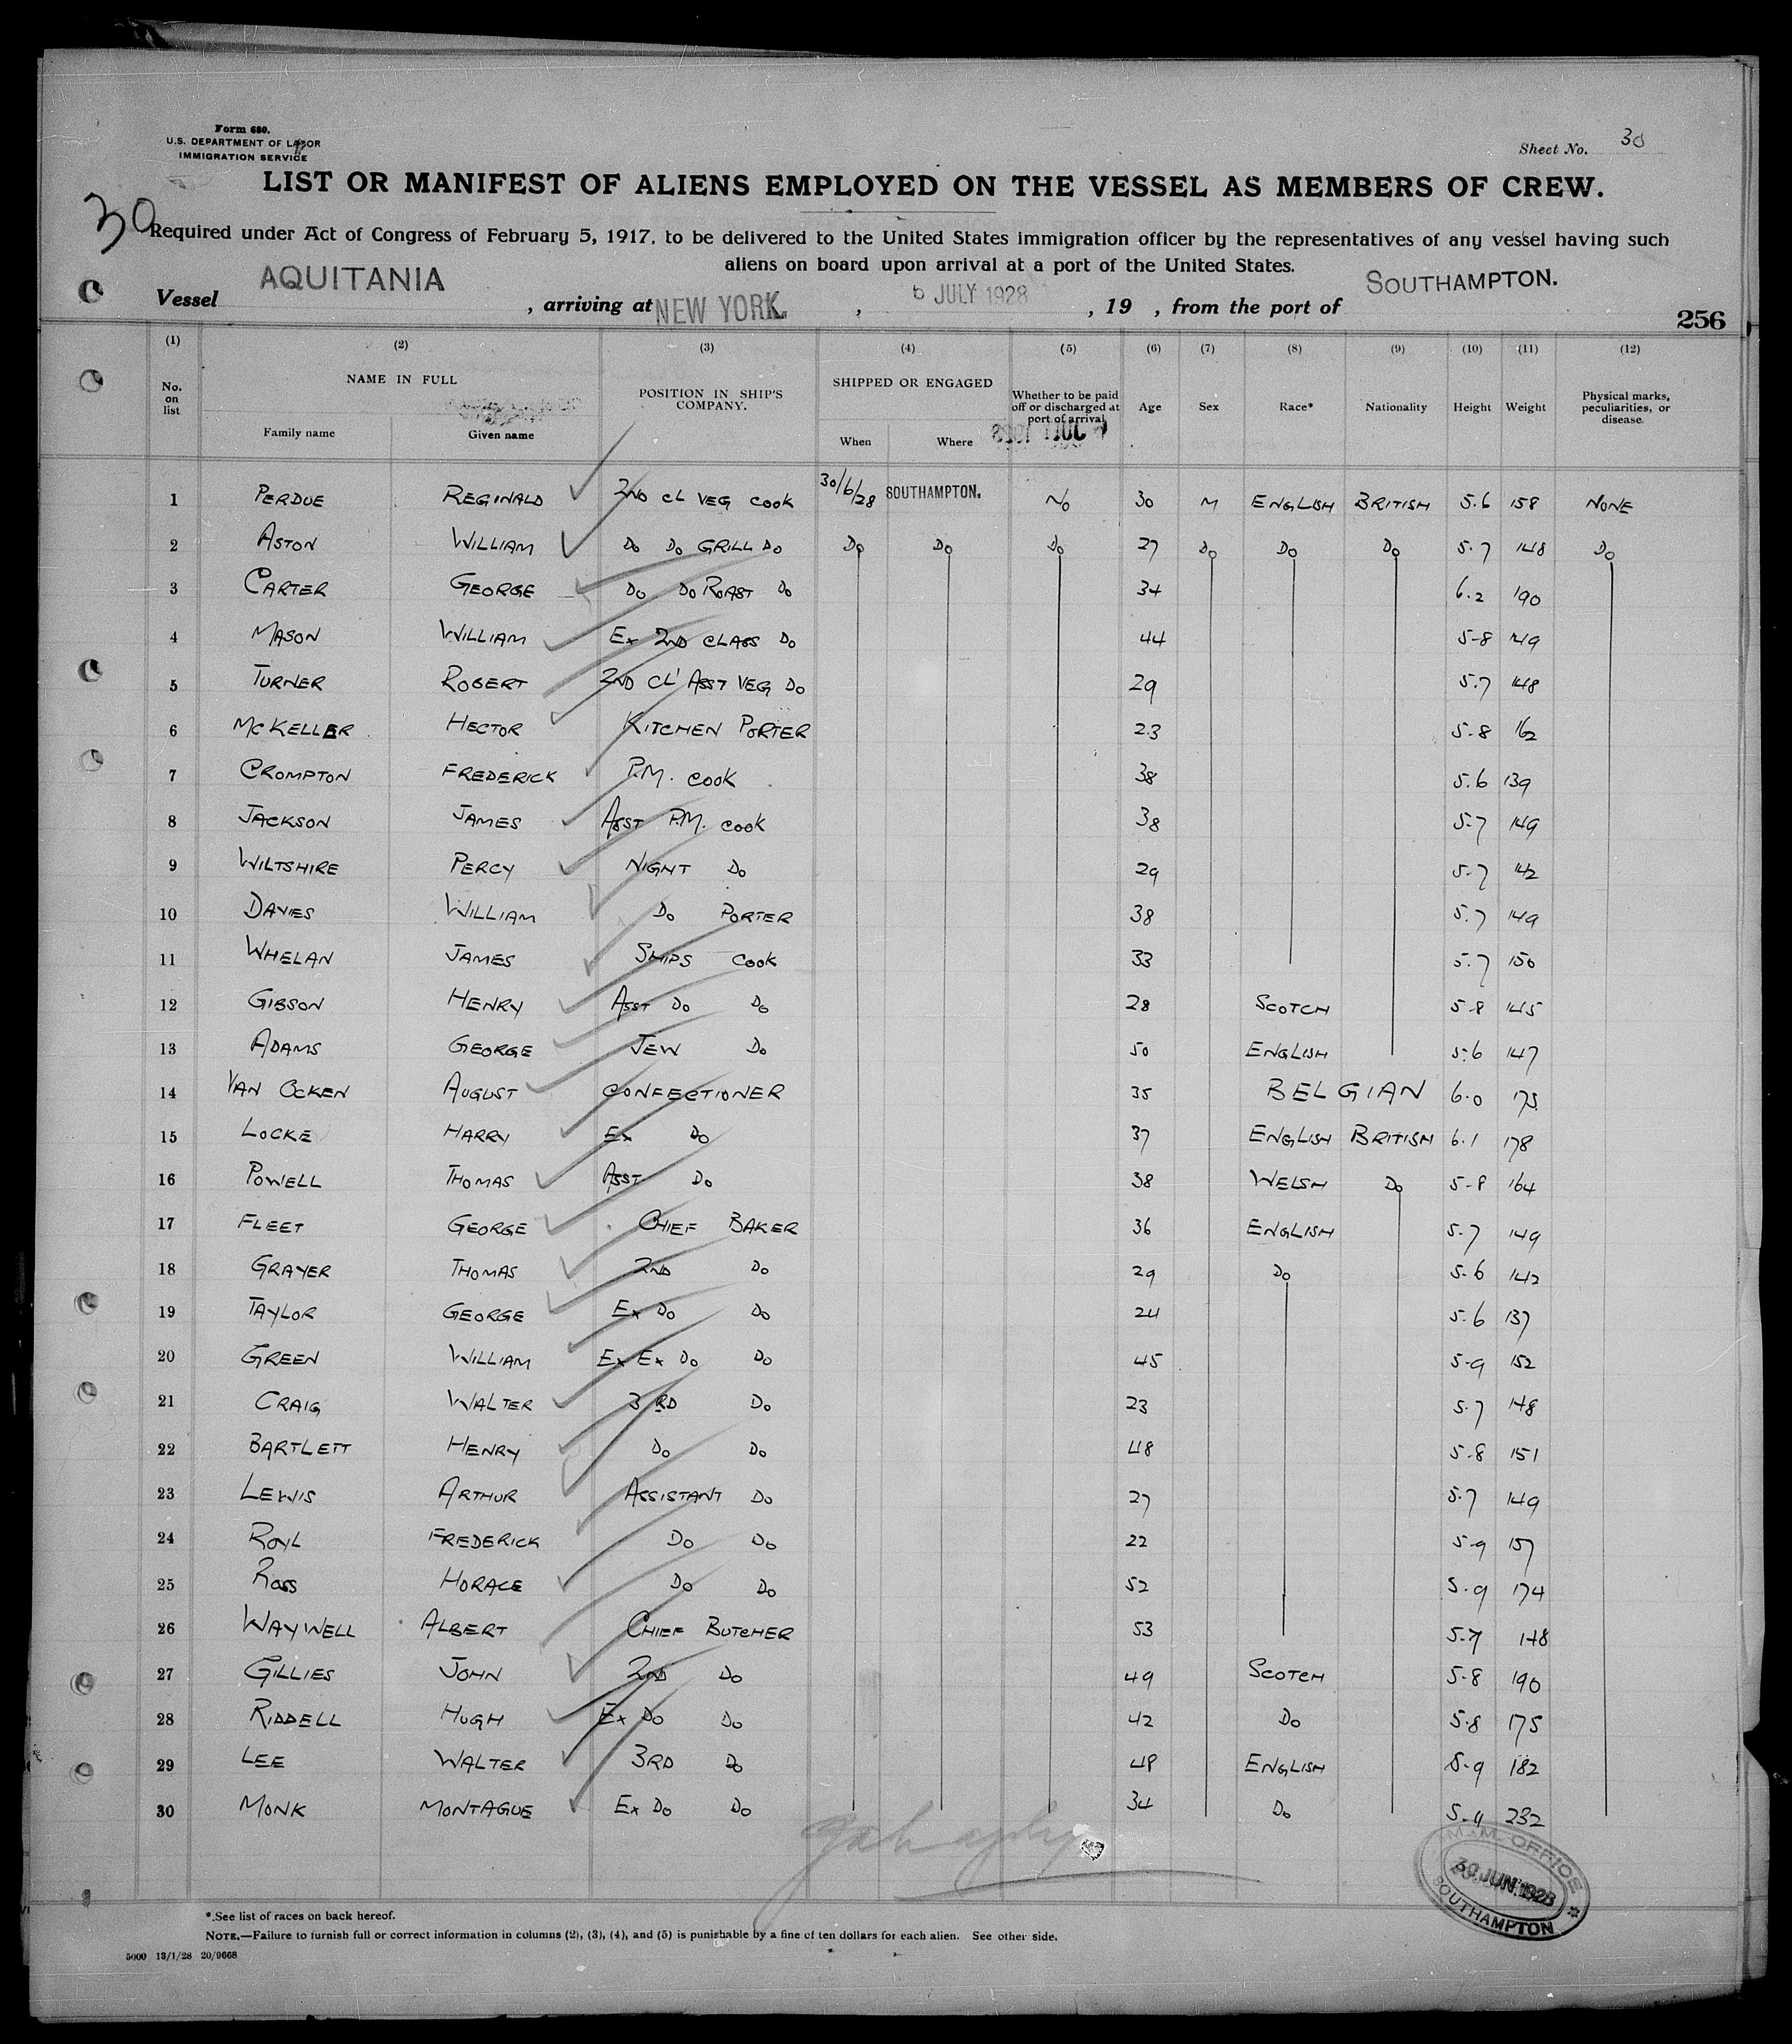 Form 680.
U.S. DEPARTMENT OF LABOR
IMMIGRATION SERVICE
Sheet No. 30
LIST OR MANIFEST OF ALIENS EMPLOYED ON THE VESSEL AS MEMBERS OF CREW.
30
Required under Act of Congress of February 5, 1917, to be delivered to the United States immigration officer by the representatives of any vessel having such
aliens on board upon arrival at a port of the United States.
Vessel AQUITANIA , arriving at NEW YORK , 6 JULY 1928 , 19 , from the port of SOUTHAMPTON.
256
(1) (2) (3) (4) (5) (6) (7) (8) (9) (10) (11) (12)
No. on list NAME IN FULL Family name Given name POSITION IN SHIP'S COMPANY. SHIPPED OR ENGAGED When Where Whether to be paid off or discharged at port of arrival Age Sex Race* Nationality Height Weight Physical marks, peculiarities, or disease.
1 PERDUE REGINALD 2ND CL VEG COOK 30/6/28 SOUTHAMPTON. No 30 M ENGLISH BRITISH 5.6 158 NONE
2 ASTON WILLIAM Do Do GRILL Do Do Do Do 27 Do Do Do 5.7 148 Do
3 CARTER GEORGE Do Do ROAST Do 34 6.2 190
4 MASON WILLIAM Ex 2ND CLASS Do 44 5-8 149
5 TURNER ROBERT 2ND CL' ASST VEG Do 29 5.7 148
6 MCKELLER HECTOR KITCHEN PORTER 23 5-8 162
7 CROMPTON FREDERICK P.M. COOK 38 5.6 139
8 JACKSON JAMES ASST P.M. COOK 38 5-7 149
9 WILTSHIRE PERCY NIGHT Do 29 5-7 142
10 DAVIES WILLIAM Do PORTER 38 5.7 149
11 WHELAN JAMES SHIPS COOK 33 5.7 150
12 GIBSON HENRY ASST Do Do 28 SCOTCH 5-8 145
13 ADAMS GEORGE JEW Do 50 ENGLISH 5.6 147
14 VAN OCKEN AUGUST CONFECTIONER 35 BELGIAN 6.0 175
15 LOCKE HARRY Ex Do 37 ENGLISH BRITISH 6.1 178
16 POWELL THOMAS ASST Do 38 WELSH Do 5-8 164
17 FLEET GEORGE CHIEF BAKER 36 ENGLISH 5.7 149
18 GRAYER THOMAS 2ND Do 29 Do 5.6 142
19 TAYLOR GEORGE Ex Do Do 24 5.6 137
20 GREEN WILLIAM Ex Ex Do Do 45 5-9 152
21 CRAIG WALTER 3RD Do 23 5.7 148
22 BARTLETT HENRY Do Do 48 5-8 151
23 LEWIS ARTHUR ASSISTANT Do 27 5.7 149
24 ROYL FREDERICK Do Do 22 5-9 157
25 ROSS HORACE Do Do 52 5.9 174
26 WAYWELL ALBERT CHIEF BUTCHER 53 5.7 148
27 GILLIES JOHN 2ND Do 49 SCOTCH 5-8 190
28 RIDDELL HUGH Ex Do Do 42 Do 5.8 175
29 LEE WALTER 3RD Do 48 ENGLISH 5-9 182
30 MONK MONTAGUE Ex Do Do 34 Do 232
IMM. OFFICE
30 JUN 1928
SOUTHAMPTON
*See list of races on back hereof.
NOTE.—Failure to furnish full or correct information in columns (2), (3), (4), and (5) is punishable by a fine of ten dollars for each alien. See other side.
5000 13/1/28 20/9668